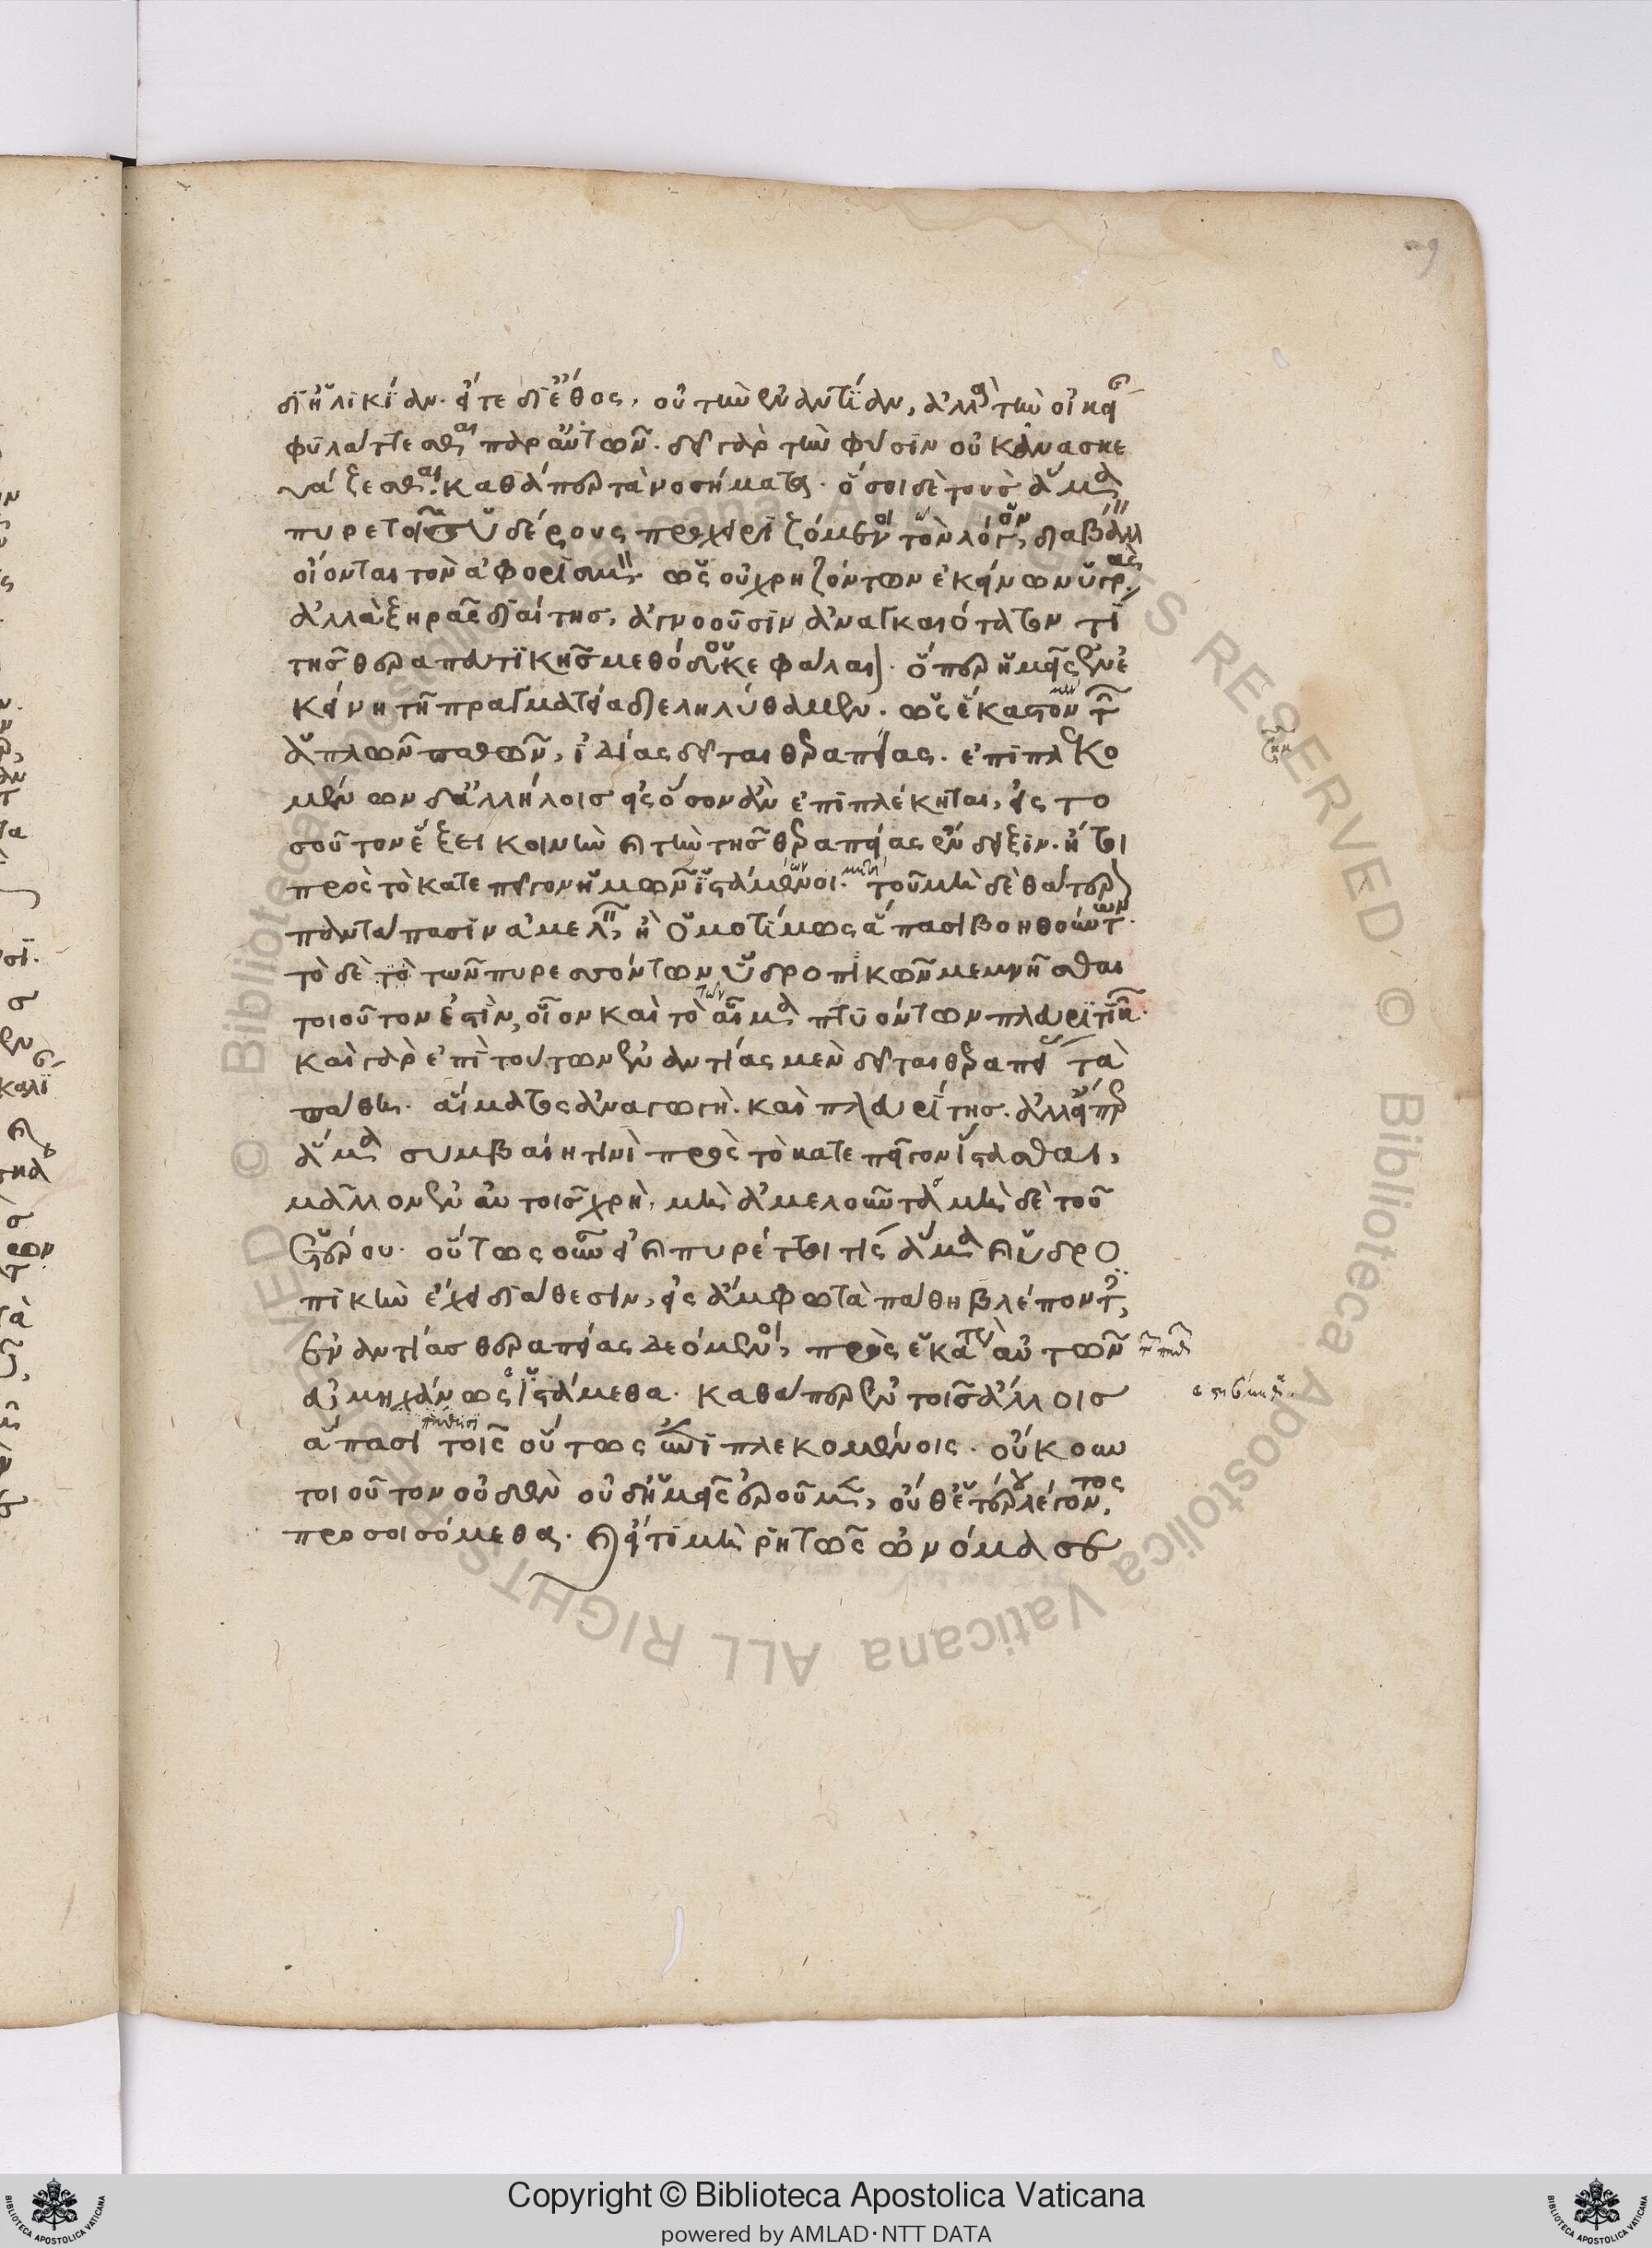 δι' ἡλικίαν· εἴτε δι' ἔθος, οὐ τὴν ἐναντίαν, ἀλλὰ τὴν οἰκεί
φυλάττεσθαι παρ' αὐτῶν. δεῖ γὰρ τὴν φύσιν οὐκ ἀνασκε
υάζεσθαι καθάπερ τὰ νοσήματα. ὅσοι δὲ τοὺς ἅμα
πυρετοῖς ὑδέρους προχειριζόμενοι τὸν λόγον, διαβάλλειν
οἴονται τὸν ἀφορισμὸν· ὡς οὐ χρηζόντων ἐκείνων ὑγρᾶς
ἀλλὰ ξηρᾶς διαίτης, ἀγνοοῦσιν ἀναγκαιότατόν τι
τῆς θεραπευτικῆς μεθόδου κεφάλαιον. ὅπερ ἡμεῖς ἐν ἐ
κείνῃ τῇ πραγματείᾳ διεληλύθαμεν. ὡς ἕκαστον μὲν τῶν
ἁπλῶν παθῶν, ἰδίας δεῖται θεραπείας. ἐπιπλεκο
μένων δ' ἀλλήλοις εἰς ὅσον ἂν ἐπιπλέκηται, εἰς το
σοῦτον ἕξει κοινὴν καὶ τὴν τῆς θεραπείας ἔνδειξιν. ἤτοι
πρὸς τὸ κατεπεῖγον ἡμῶν ἱσταμένων. τοῦ μὴ δὲ θατέρου
παντάπασιν ἀμελεῖν, ἢ ὁμοτίμως ἅπασι βοηθούντων.
τὸ δὲ τὸ τῶν πυρεσσόντων ὑδροπικῶν μεμνῆσθαι
τοιοῦτον ἐστὶν, οἷον καὶ τὸ τῶν αἷμα πτυόντων πλευριτικῶν.
καὶ γὰρ ἐπὶ τούτων ἐναντίας μὲν δεῖται θεραπείας τὰ
πάθη. αἵματος ἀναγωγὴ. καὶ πλευρίτης. ἀλλ' εἴπερ
ἅμα συμβαίη τινὶ πρὸς τὸ κατεπεῖγον ἵστασθαι,
μᾶλλον ἐν αὐτοῖς χρὴ. μὴ ἀμελοῦντα μὴ δὲ τοῦ
ἑτέρου. οὕτως οὖν εἰ καὶ πυρέττοι τίς ἅμα καὶ ὑδρο
πικὴν ἔχει διάθεσιν, εἰς ἄμφω τὰ πάθη βλέποντες,
ἐναντίας θεραπείας δεόμενοι, πρὸς ἕκαστον αὐτῶν
ἀμηχάνως ἱστάμεθα. καθάπερ ἐν τοῖς ἄλλοις
ἅπασι πάθεσι τοῖς οὕτως ἐπιπλεκομένοις. οὔκουν
τοιοῦτον οὐδὲν οὐδ' ἡμεῖς ἐροῦμεν, οὔθ' ἑτέρου λέγοντος,
προσοισόμεθα. καὶ εἴ τι μὴ ῥητῶς ὠνόμασε